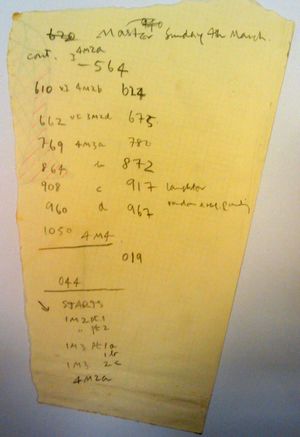 Master Sunday 4th March.
cont. 3 4M2a
- 564
610 4M2b 624
662 3M2d 675
769 4M3a 780
864 b 872
908 c 917 laughter
960 d 967 random
1050 4M4
019
044
STARTS
1M2 pt 1
" pt 2
1M3 pt 1a
1b
1M3 2c
4M2a